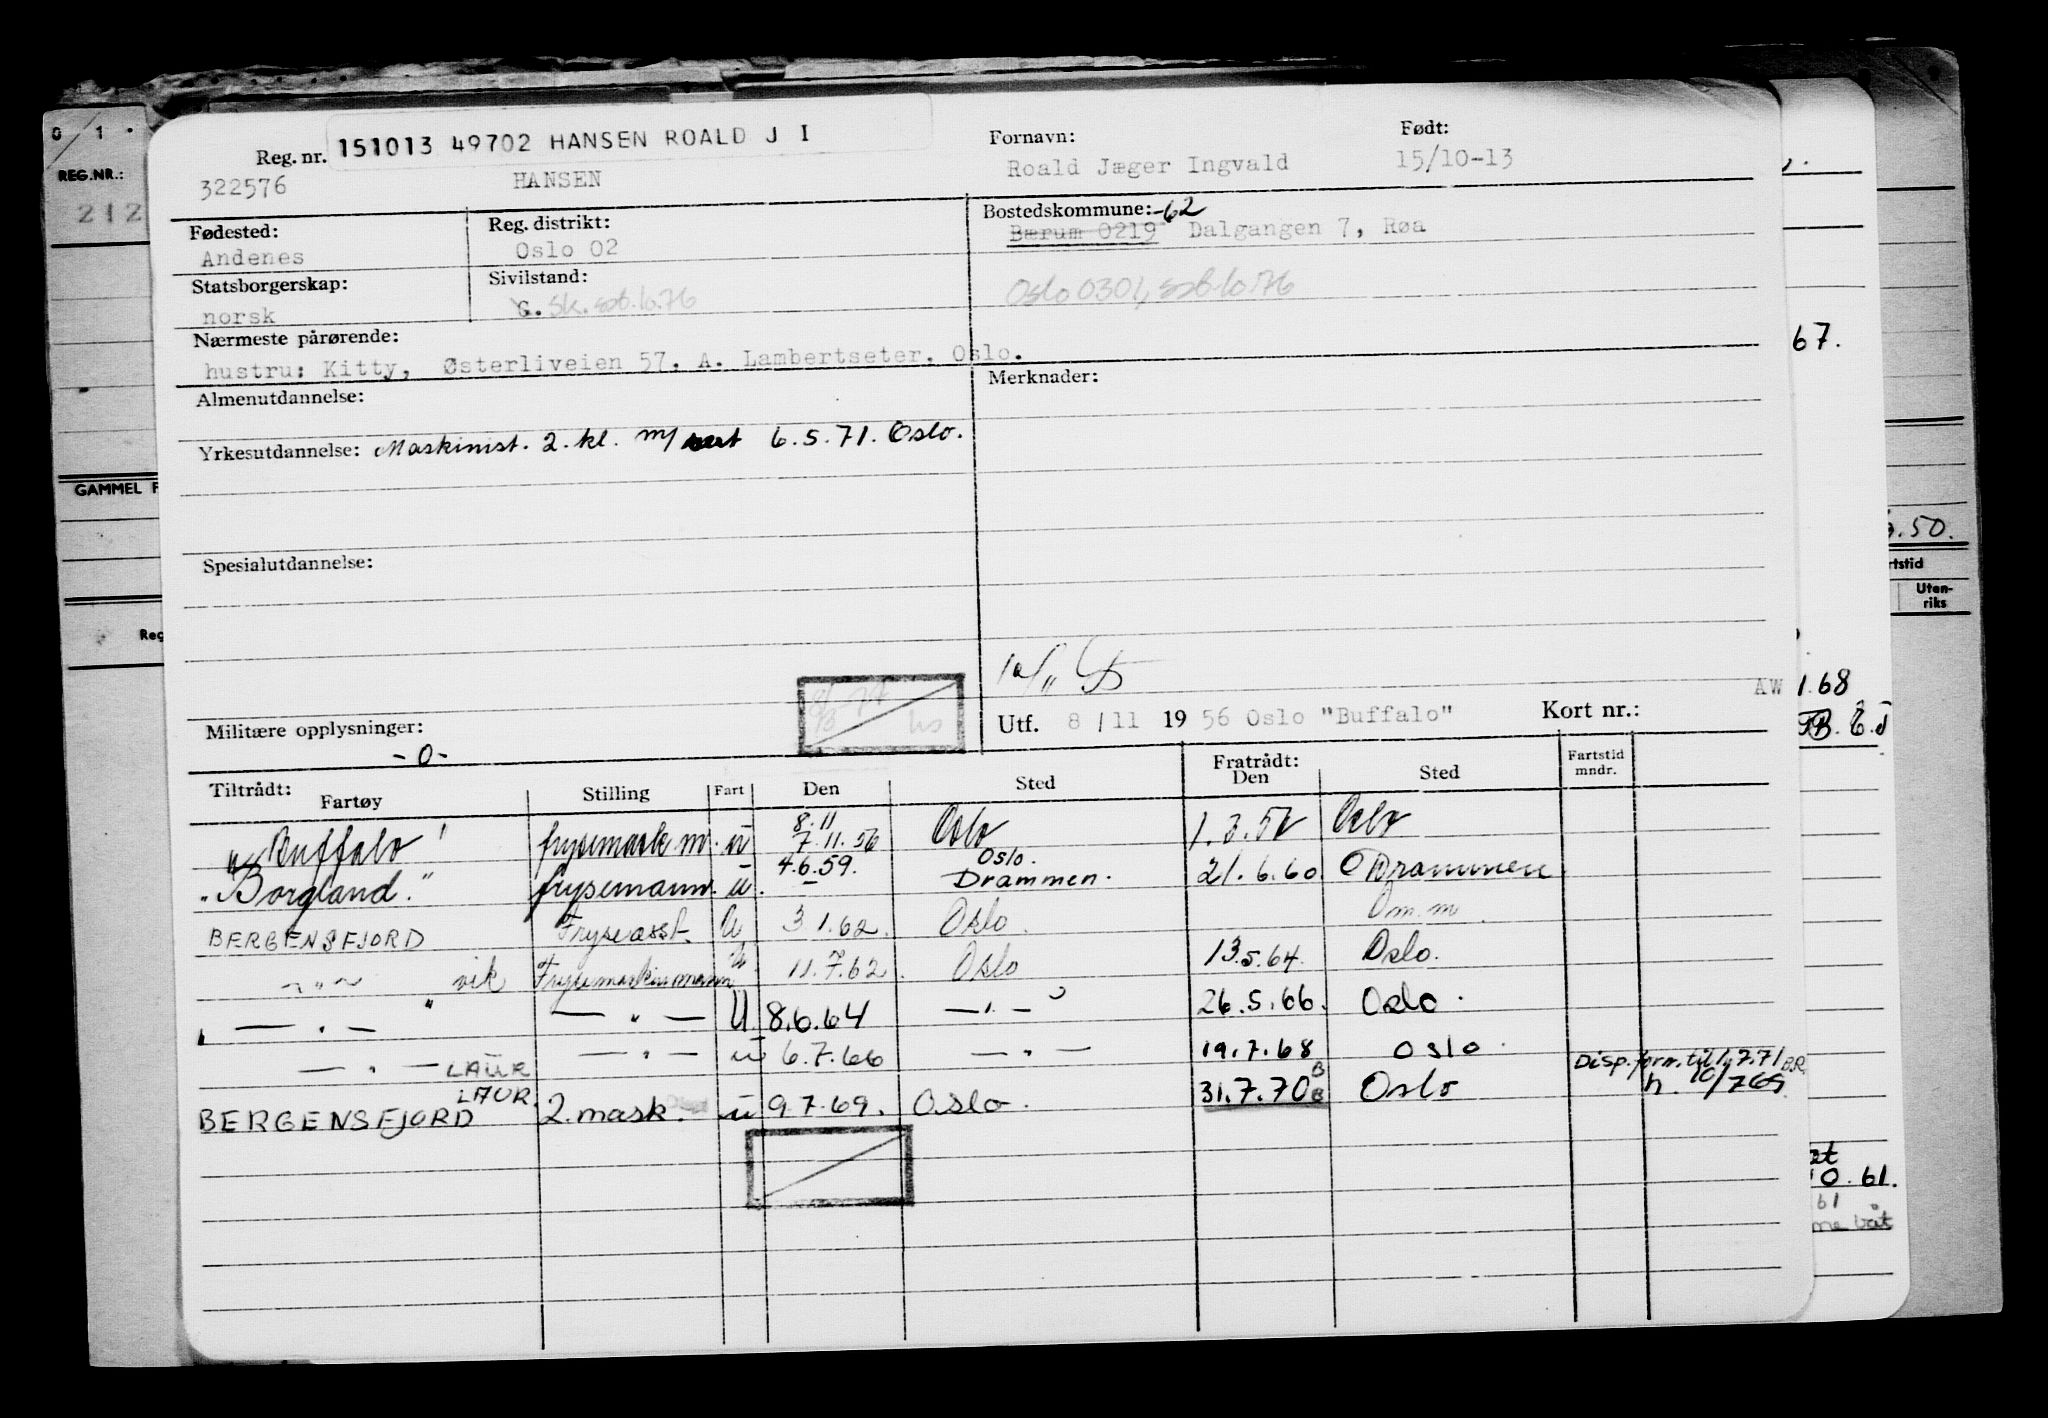 0 1 .
REG.NR.:
212
GAMMEL F
Reg
Reg. nr. 151013 49702 HANSEN ROALD J I
322576 HANSEN
Fornavn:
Roald Jæger Ingvald
Født:
15/10-13
Fødested:
Andenes
Reg. distrikt:
Oslo 02
Bostedskommune: -62
Bærum 0219 Dalgangen 7, Røa
Statsborgerskap:
norsk
Sivilstand:
G. Sk. spt. 10.76
Oslo 0301, spt. 10.76
Nærmeste pårørende:
hustru: Kitty, Østerliveien 57. A. Lambertseter, Oslo.
Almenutdannelse:
Merknader:
Yrkesutdannelse: Maskinist. 2. kl. m/ sert 6.5.71. Oslo.
Spesialutdannelse:
Militære opplysninger:
-0-
Utf. 8/11 1956 Oslo "Buffalo" Kort nr.:
Tiltrådt: Fartøy Stilling Fart Den Sted Fratrådt: Den Sted Fartstid mndr.
"Buffalo" frysemask m. u 8.11 7.11.56 Oslo 1.3.57 Oslo
"Borgland." frysemann. u. 4.6.59. Oslo. Drammen. 21.6.60 Drammen
BERGENSFJORD Fryseasst. U 3.1.62. Oslo. Om.m.
—"— vik Frysemaskinmann U. 11.7.62. Oslo 13.5.64. Oslo.
" — " — — " — U 8.6.64 — " — 26.5.66. Oslo.
— " — LAUR — " — u 6.7.66 — " — 19.7.68 Oslo.
BERGENSFJORD LAUR. 2. mask. u 9.7.69. Oslo. 31.7.70 B B Oslo
Disp. forn. til 1/7.71 B.R.
h. 10/769
67.
AW 1.68
.50.
rtstid
Uten-
riks
10.61.
61